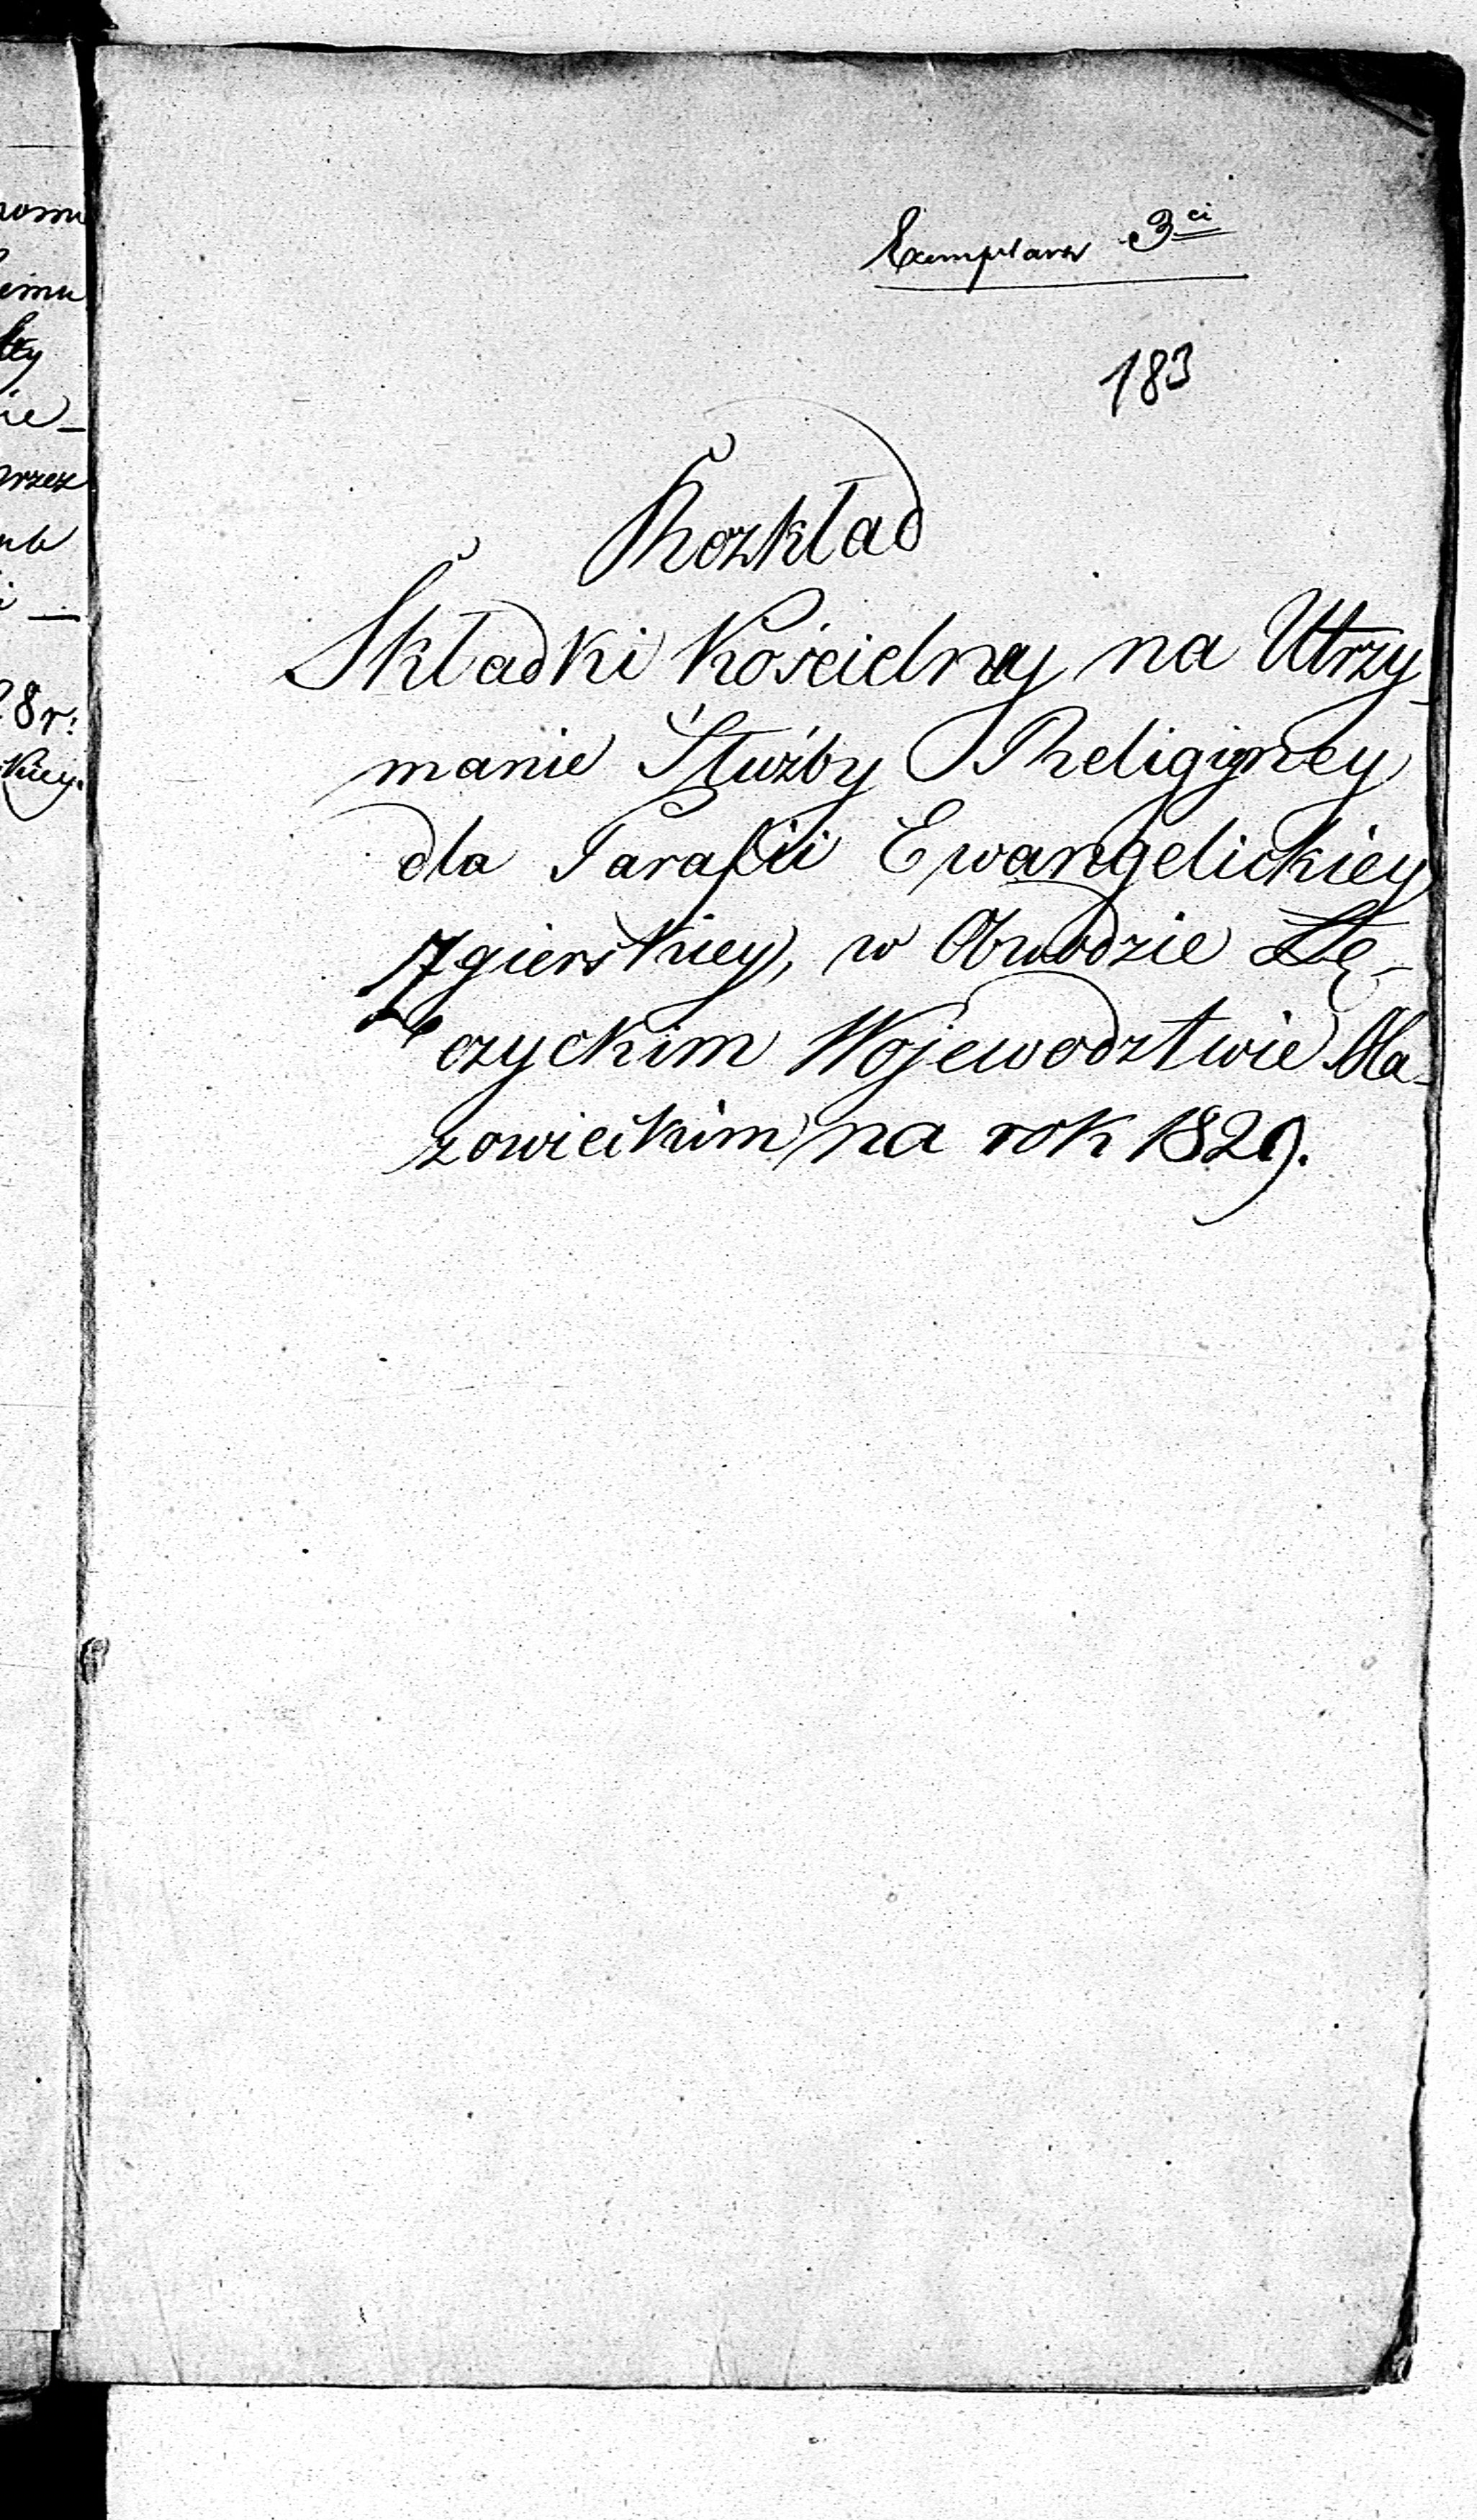 Exemplarz 3ci
183
Rozkład
Składki Kościelney na Utrzy-
manie Służby Religiyney
dla Parafii Ewangelickiey
Zgierskiey, w Obwodzie Łę-
czyckim Wojewodztwie Ma-
zowieckim na rok 1829.
8r: